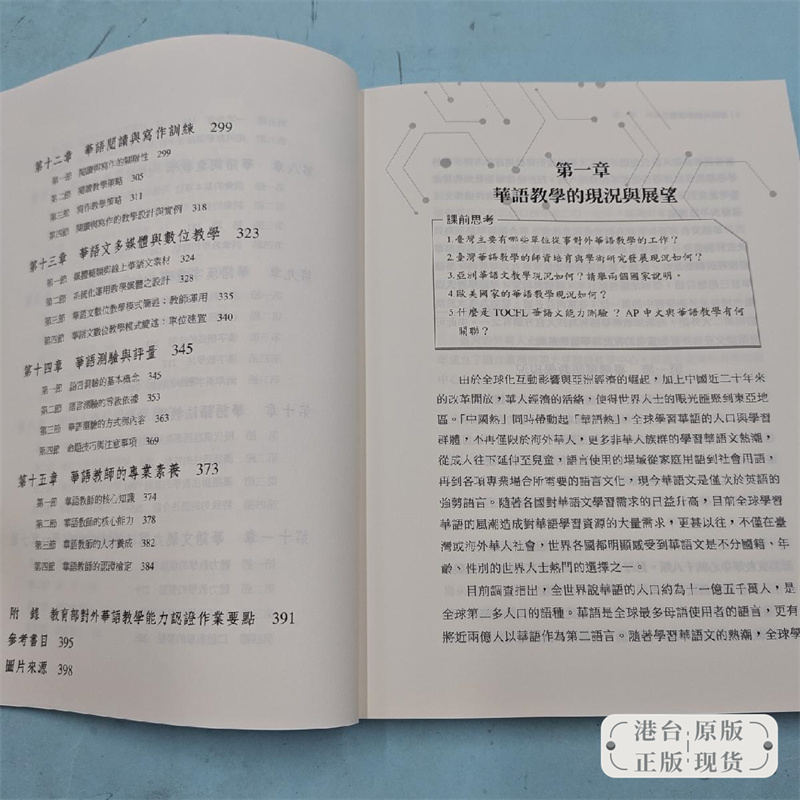 第十二章 華語閱讀與寫作訓練 299
第一節 閱讀與寫作的關聯性 299
第二節 閱讀教學策略 305
第三節 寫作教學策略 311
第四節 閱讀與寫作的教學設計與實例 318
第十三章 華語文多媒體與數位教學 323
第一節 媒體輔助與線上華語文素材 324
第二節 系統化運用教學媒體之設計 328
第三節 華語文數位教學模式簡述：教師運用 335
第四節 華語文數位教學模式簡述：單位建置 340
第十四章 華語測驗與評量 345
第一節 語言測驗的基本概念 345
第二節 語言測驗的等效依據 353
第三節 華語測驗的方式與內容 363
第四節 命題技巧與注意事項 369
第十五章 華語教師的專業素養 373
第一節 華語教師的核心知識 374
第二節 華語教師的核心能力 378
第三節 華語教師的人才養成 382
第四節 華語教師的認證檢定 384
附 錄 教育部對外華語教學能力認證作業要點 391
參考書目 395
圖片來源 398
第一章
華語教學的現況與展望
課前思考
1.臺灣主要有哪些單位從事對外華語教學的工作？
2.臺灣華語教學的師資培育與學術研究發展現況如何？
3.亞洲華語文教學現況如何？請舉兩個國家說明。
4.歐美國家的華語教學現況如何？
5.什麼是 TOCFL 華語文能力測驗？AP 中文與華語教學有何
關聯？
由於全球化互動影響與亞洲經濟的崛起，加上中國近二十年來
的改革開放，華人經濟的活絡，使得世界人士的眼光匯聚到東亞地
區。「中國熱」同時帶動起「華語熱」，全球學習華語的人口與學習
群體，不再僅限於海外華人，更多非華人族群的學習華語文熱潮，
從成人往下延伸至兒童，語言使用的場域從家庭用語到社會用語，
再到各項專業場合所需要的語言文化，現今華語文是僅次於英語的
強勢語言。隨著各國對華語文學習需求的日益升高，目前全球學習
華語的風潮造成對華語學習資源的大量需求，更甚以往，不僅在臺
灣或海外華人社會，世界各國都明顯感受到華語文是不分國籍、年
齡、性別的世界人士熱門的選擇之一。
目前調查指出，全世界說華語的人口約為十一億五千萬人，是
全球第二多人口的語種。華語是全球最多母語使用者的語言，更有
將近兩億人以華語作為第二語言。隨著學習華語文的熱潮，全球學
港台 原版
正版 现货